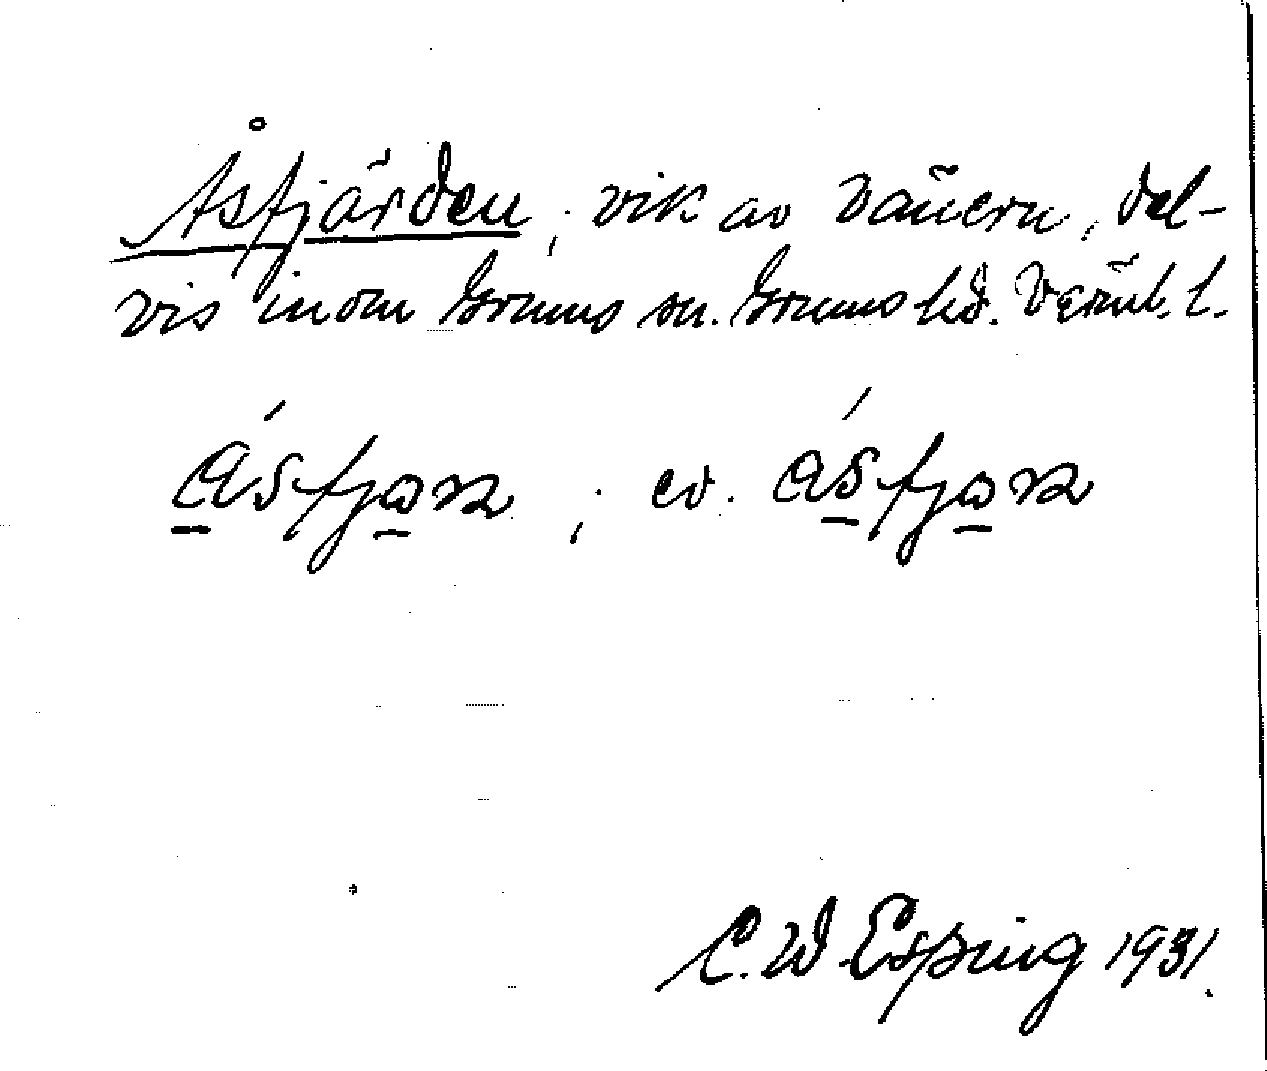 Åsfjärden, vik av Vänern, del-
vis inom Grums sn. Grums hd. Värml. l.
ásfjaṉ, ev. ásfjaṉ
C. W. Esping 1931.